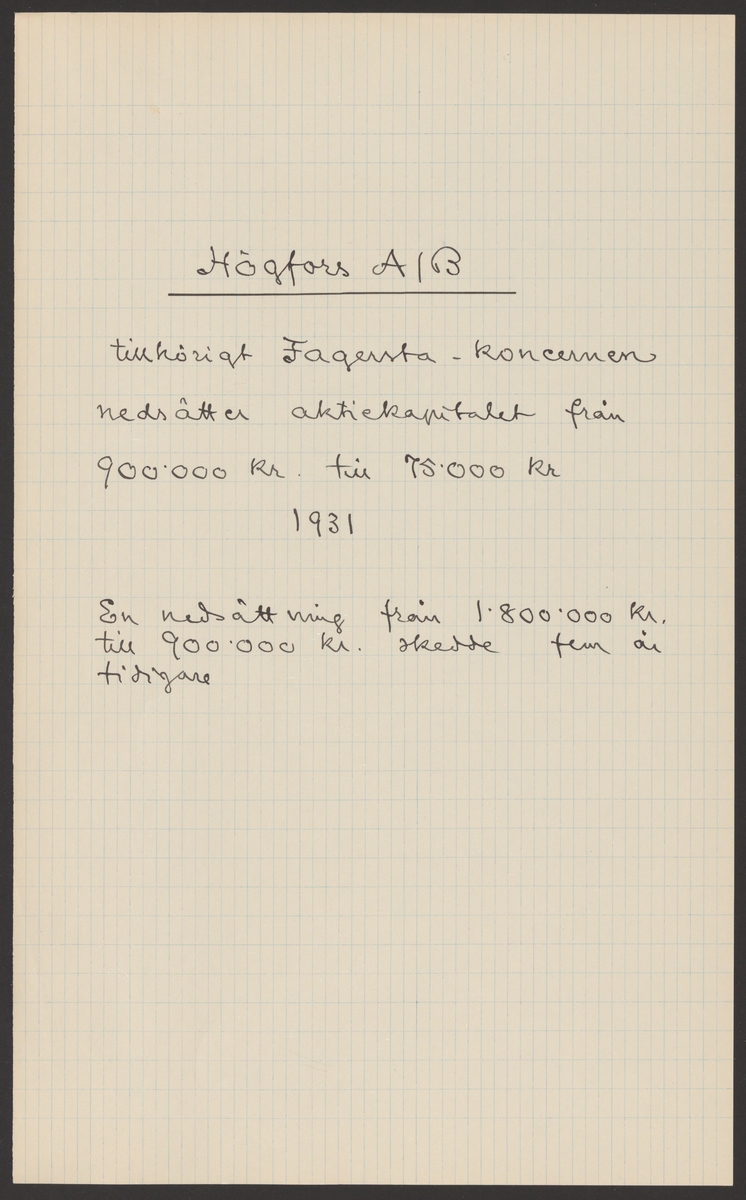 Högfors A/B
tillhörigt Fagersta - koncernen
nedsätter aktiekapitalet från
900·000 kr. till 75·000 kr
1931
En nedsättning från 1·800·000 kr.
till 900·000 kr. skedde fem år
tidigare